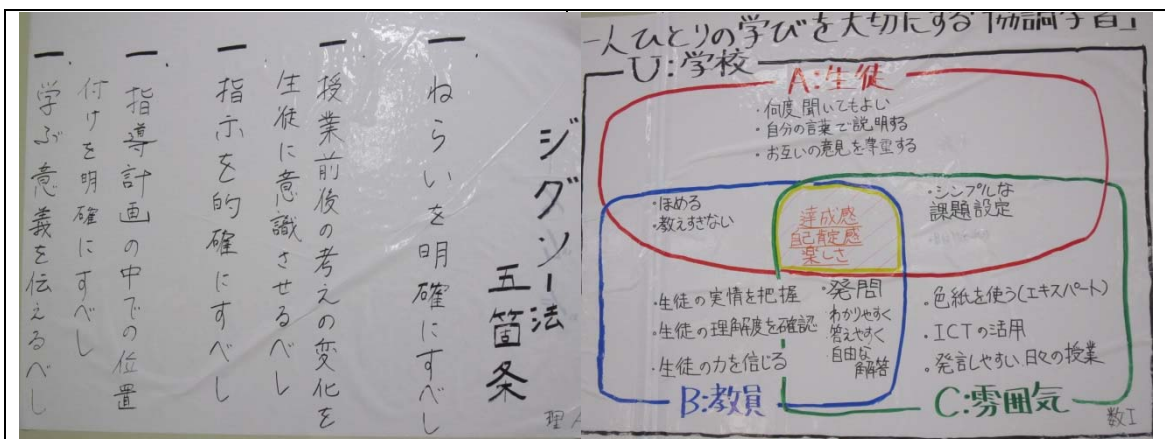 ジグソー法
五箇条
一、ねらいを明確にすべし
一、授業前後の考えの変化を
生徒に意識させるべし
一、指示を的確にすべし
一、指導計画の中での位置
付けを明確にすべし
一、学ぶ意義を伝えるべし
理A
一人ひとりの学びを大切にする「協調学習」
U:学校
A:生徒
・何度聞いてもよい
・自分の言葉で説明する
・お互いの意見を尊重する
・ほめる
・教えすぎない
達成感
自己肯定感
楽しさ
・シンプルな
課題設定
・生徒の実情を把握
・生徒の理解度を確認
・生徒の力を信じる
・発問
わかりやすく
答えやすく
自由な
解答
・色紙を使う(エキスパート)
・ICTの活用
・発言しやすい日々の授業
B:教員
C:雰囲気
数I